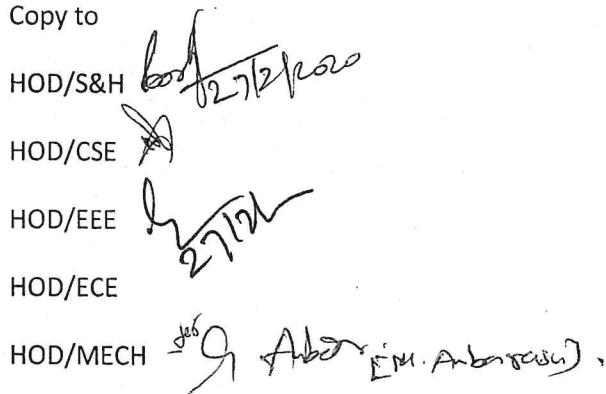 Copy to
HOD/S&H 27/2/2020
HOD/CSE
HOD/EEE 27/2/
HOD/ECE
HOD/MECH [M. Anbarasu].